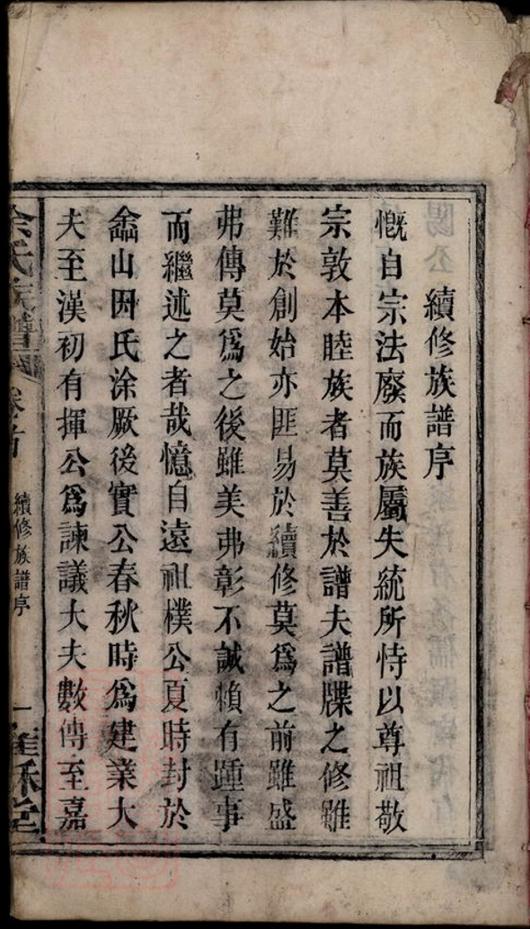 續修族譜序
慨自宗法廢而族屬失統所恃以尊祖敬
宗敦本睦族者莫善於譜夫譜牒之修雖
難於創始亦匪易於續修莫爲之前雖盛
弗傳莫爲之後雖美弗彰不誠賴有踵事
而繼述之者哉憶自遠祖樸公夏時封於
嵞山因氏涂厥後實公春秋時爲建業大
夫至漢初有揮公爲諫議大夫數傳至嘉
涂氏族譜
卷首
續修族譜序
一
堂